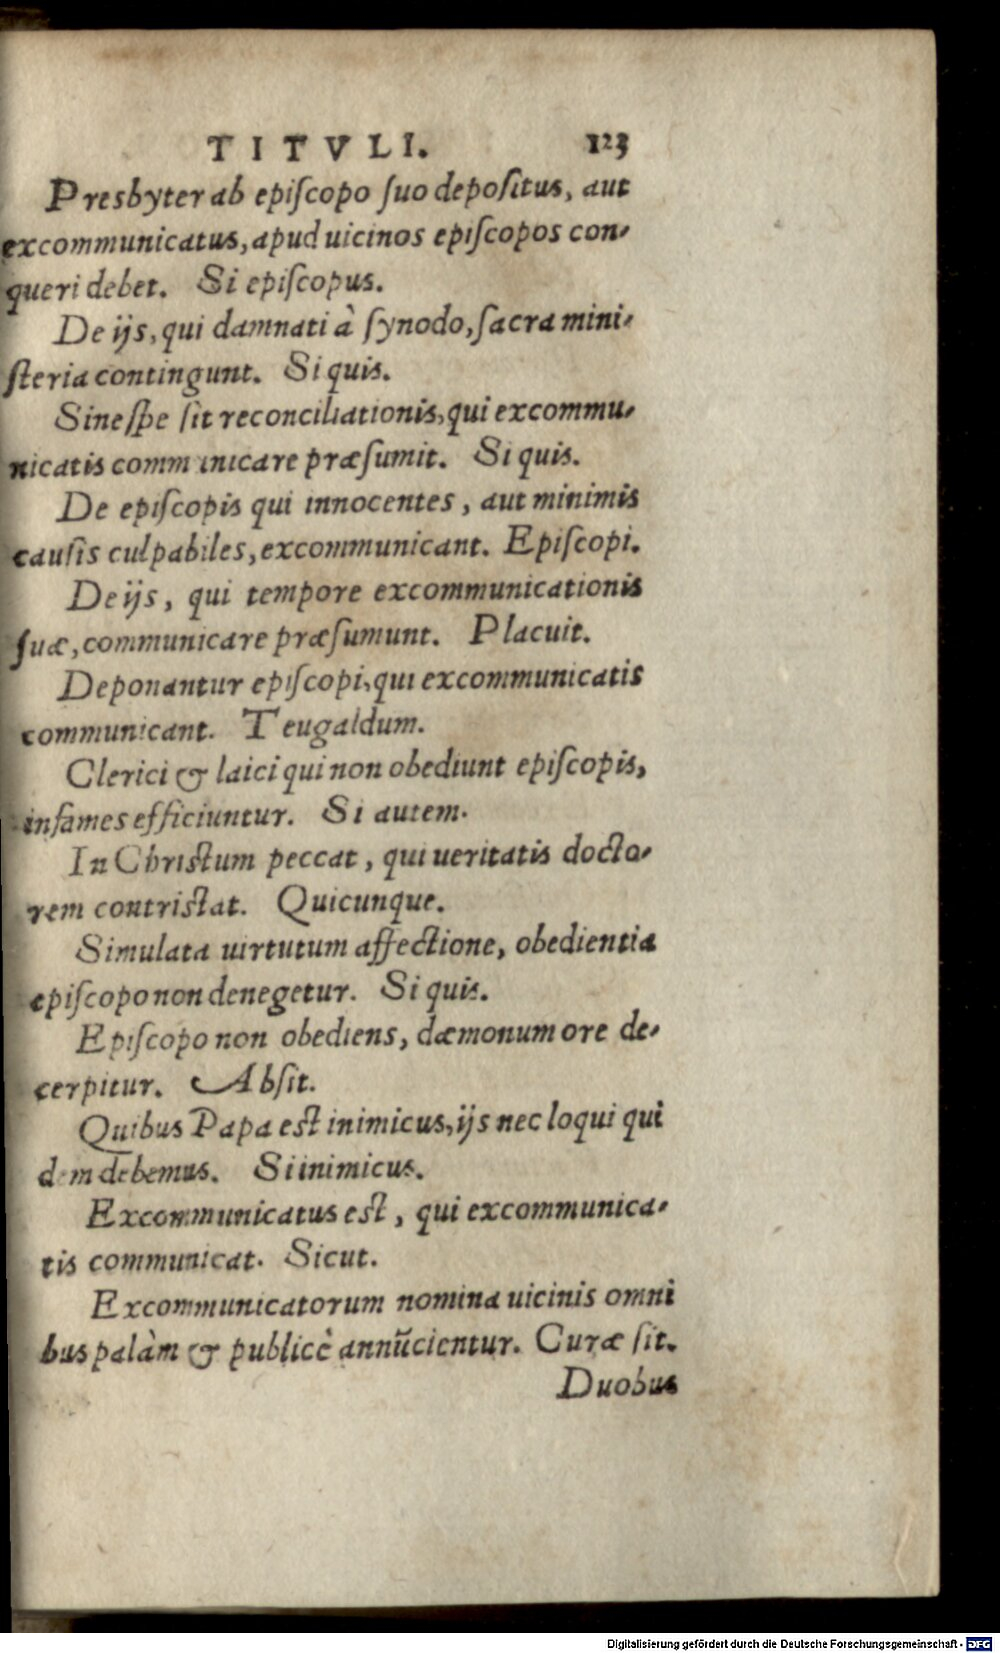 TITVLI. 123
Presbyter ab episcopo suo depositus, aut
excommunicatus, apud uicinos episcopos con-
queri debet. Si episcopus.
De ijs, qui damnati à synodo, sacra mini-
steria contingunt. Si quis.
Sine spe sit reconciliationis, qui excommu-
nicatis communicare præsumit. Si quis.
De episcopis qui innocentes, aut minimis
causis culpabiles, excommunicant. Episcopi.
De ijs, qui tempore excommunicationis
suæ, communicare præsumunt. Placuit.
Deponantur episcopi, qui excommunicatis
communicant. Teugaldum.
Clerici & laici qui non obediunt episcopis,
infames efficiuntur. Si autem.
In Christum peccat, qui ueritatis docto-
rem contristat. Quicunque.
Simulata uirtutum affectione, obedientia
episcopo non denegetur. Si quis.
Episcopo non obediens, dæmonum ore de-
cerpitur. Absit.
Quibus Papa est inimicus, ijs nec loqui qui
dem debemus. Si inimicus.
Excommunicatus est, qui excommunica-
tis communicat. Sicut.
Excommunicatorum nomina uicinis omni
bus palàm & publicè annũcientur. Curæ sit.
Duobus
Digitalisierung gefördert durch die Deutsche Forschungsgemeinschaft - DFG